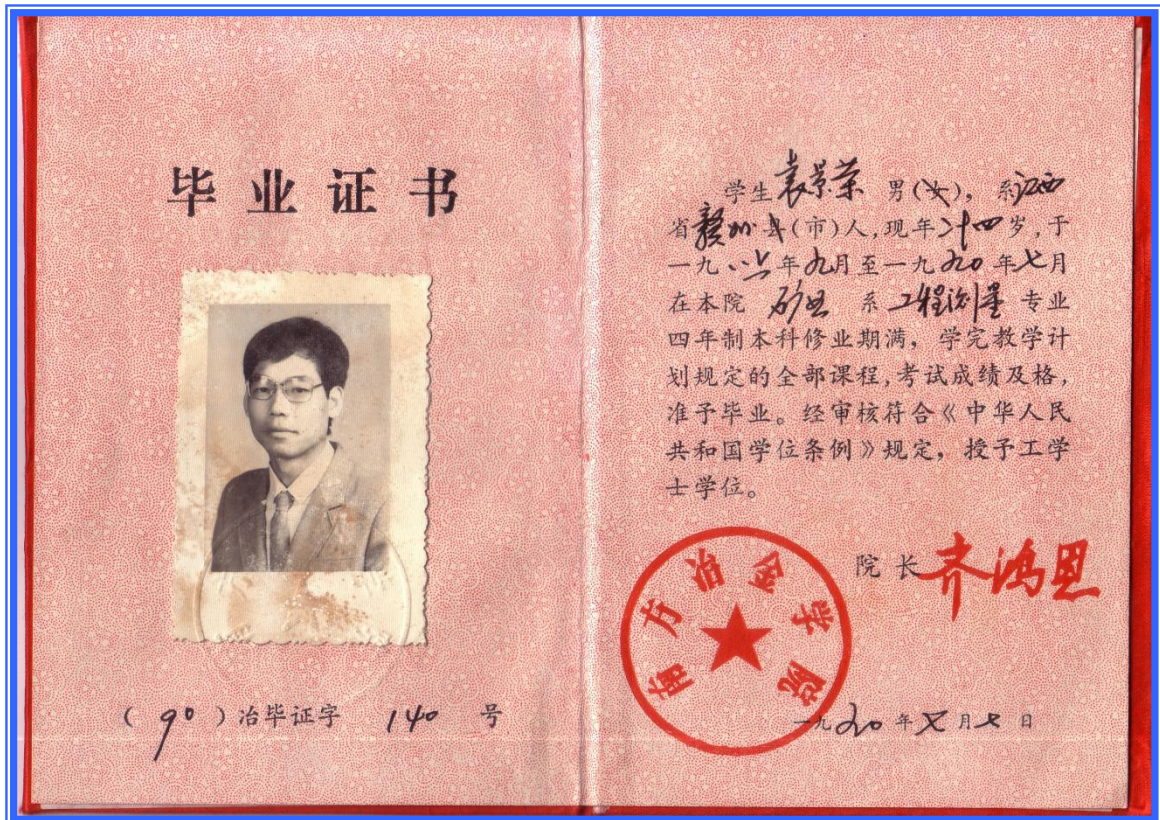 毕业证书
(90)冶毕证字 140 号
学生袁景荣 男(女),系江西
省赣州县(市)人,现年廿四岁,于
一九八六年九月至一九九0年七月
在本院 矿山 系 工程测量 专业
四年制本科修业期满,学完教学计
划规定的全部课程,考试成绩及格,
准予毕业。经审核符合《中华人民
共和国学位条例》规定,授予工学
士学位。
院长 齐鸿恩
南方冶金学院
一九九0年七月七日